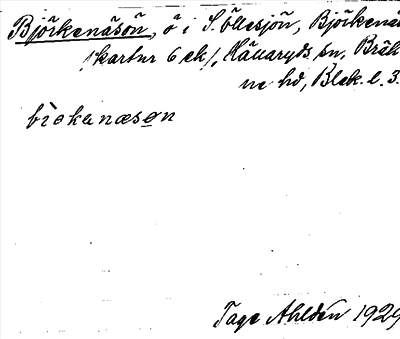 Björkenäsön, ö i S. Öllesjön, Björkenäs
/kartur 6 ek/, Hällaryds sn, Bräk
ne hd, Blek. l. 3.
bìokanæsøn
Tage Ahldén 1929